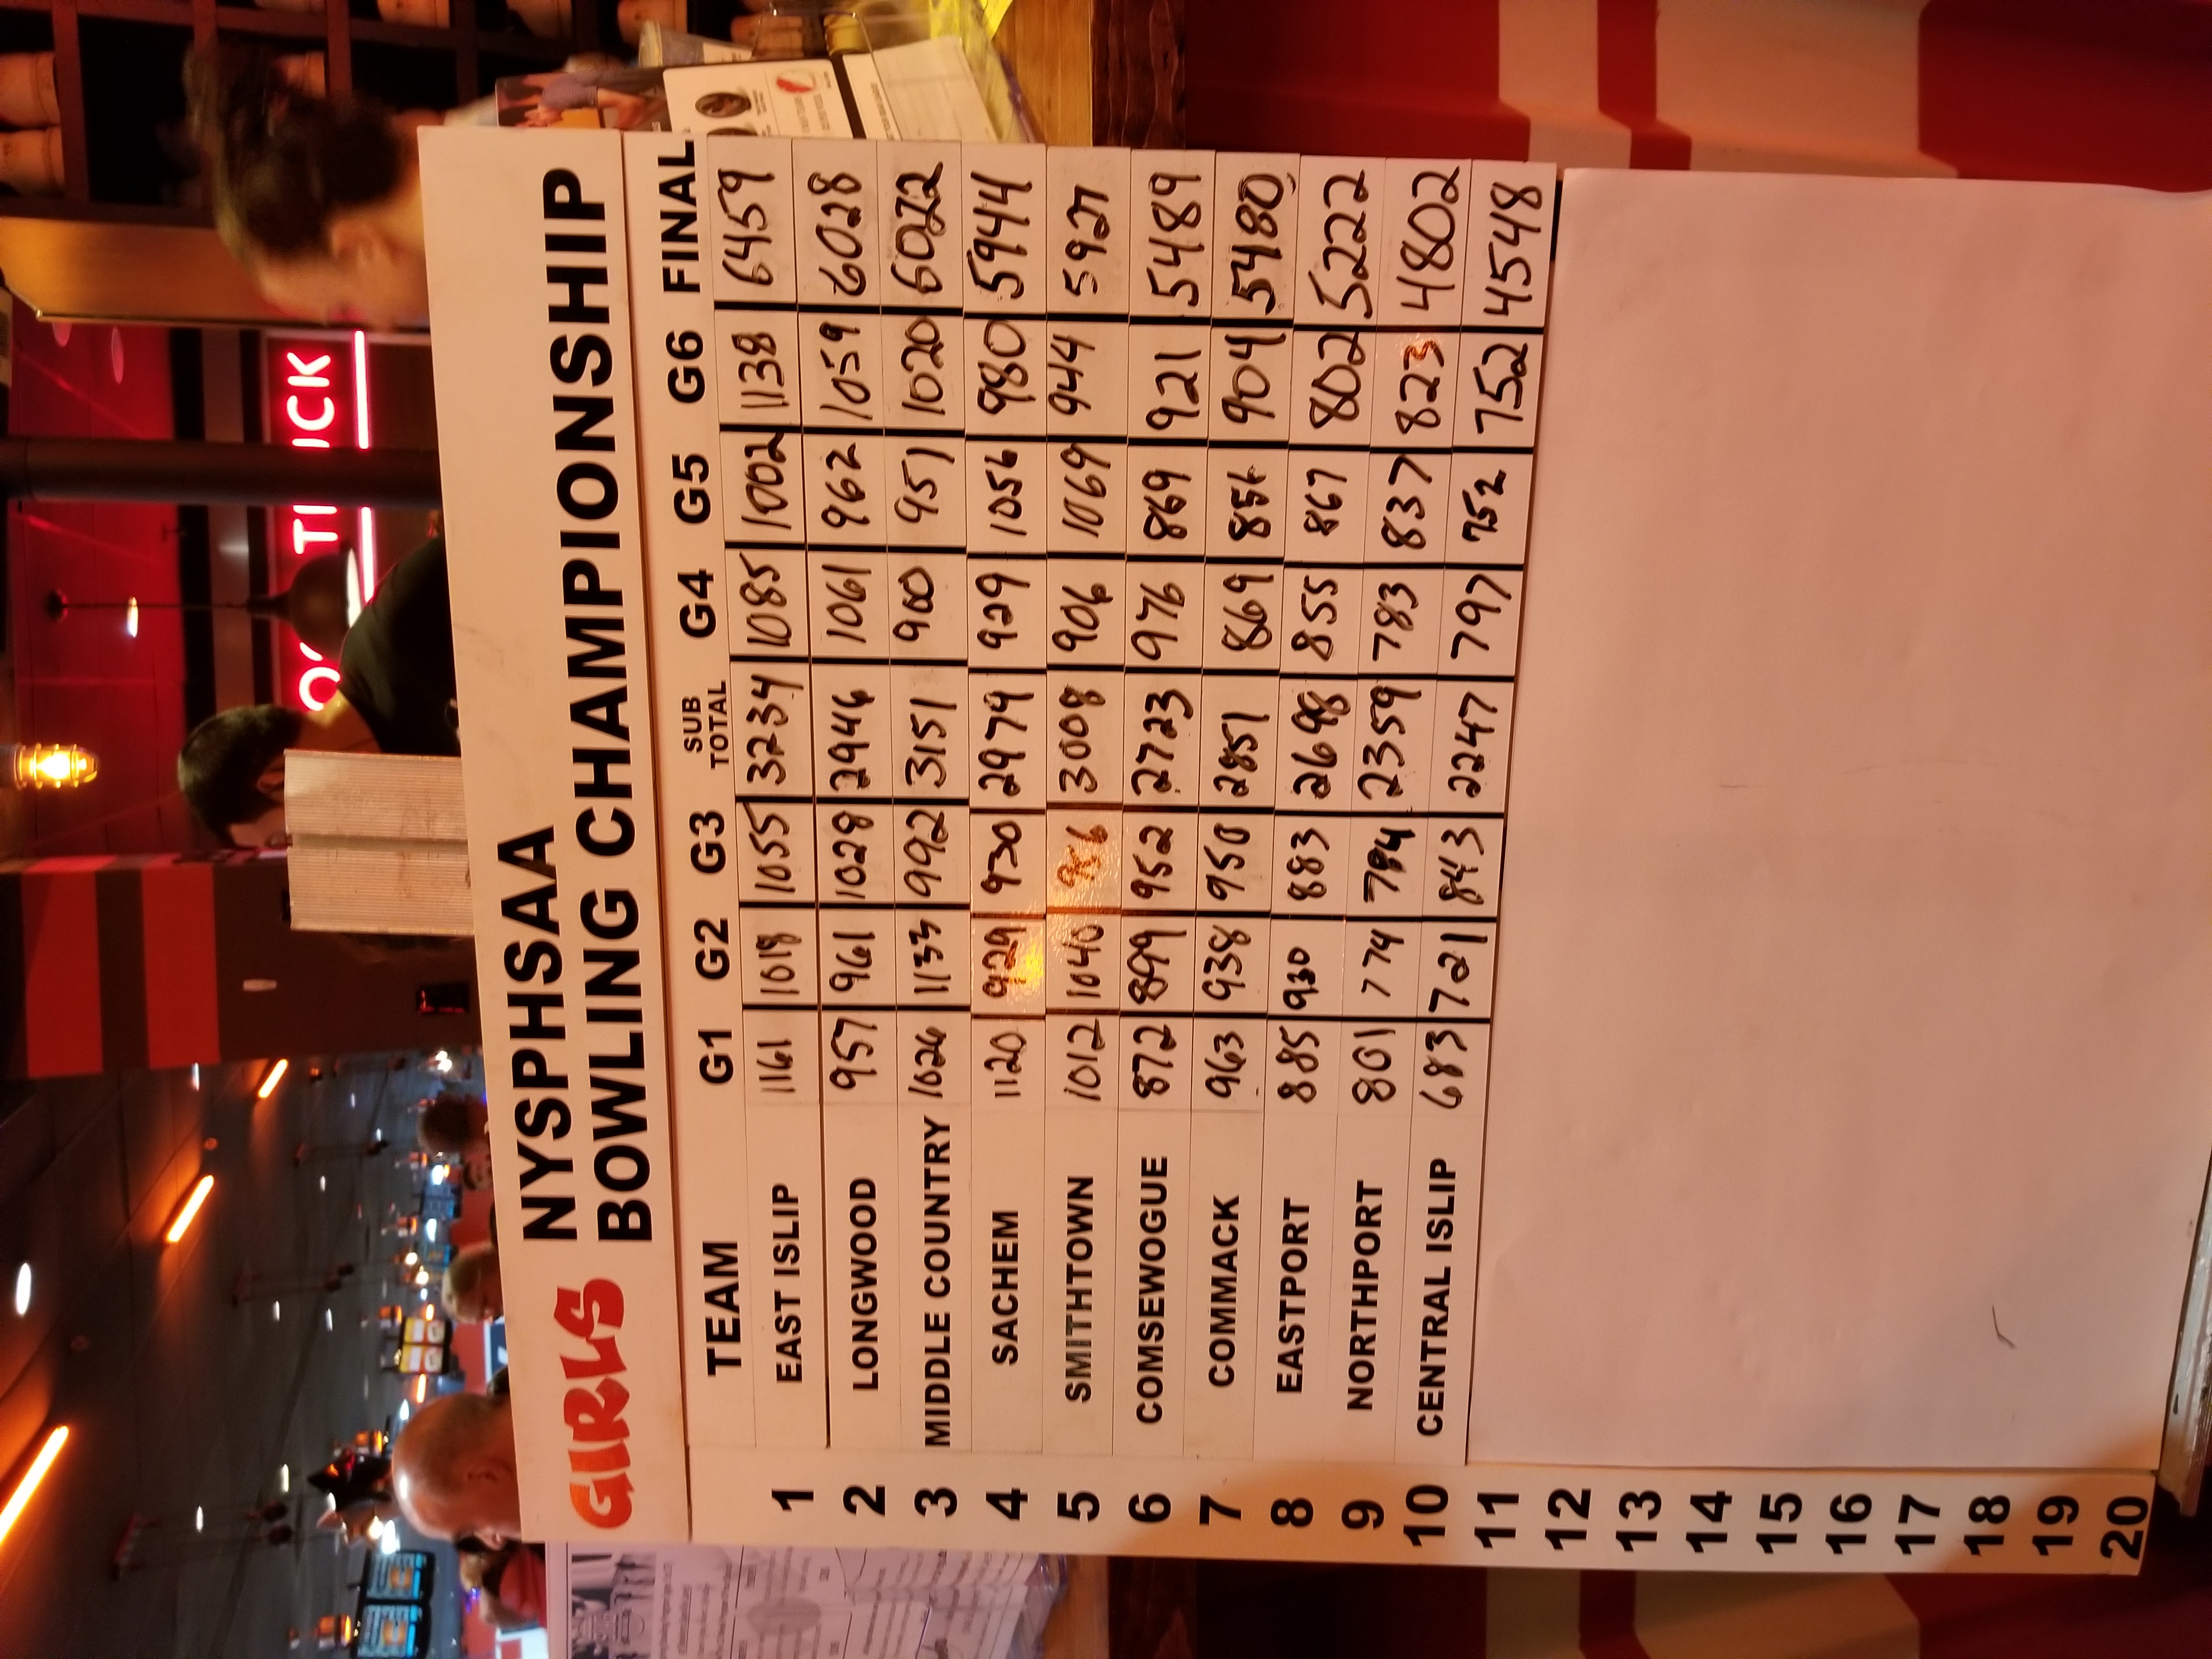 GIRLS NYSPHSAA
BOWLING CHAMPIONSHIP
TEAM G1 G2 G3 SUB TOTAL G4 G5 G6 FINAL
1 EAST ISLIP 1161 1018 1055 3234 1085 1002 1138 6459
2 LONGWOOD 957 961 1028 2946 1061 962 1059 6028
3 MIDDLE COUNTRY 1026 1133 992 3151 900 951 1020 6022
4 SACHEM 1120 929 930 2979 929 1056 980 5944
5 SMITHTOWN 1012 1040 956 3008 906 1069 944 5927
6 COMSEWOGUE 872 899 952 2723 976 869 921 5489
7 COMMACK 963 938 950 2851 869 856 904 5480
8 EASTPORT 885 930 883 2698 855 867 802 5222
9 NORTHPORT 801 774 784 2359 783 837 823 4802
10 CENTRAL ISLIP 683 721 843 2247 797 752 752 4548
11
12
13
14
15
16
17
18
19
20
ICK